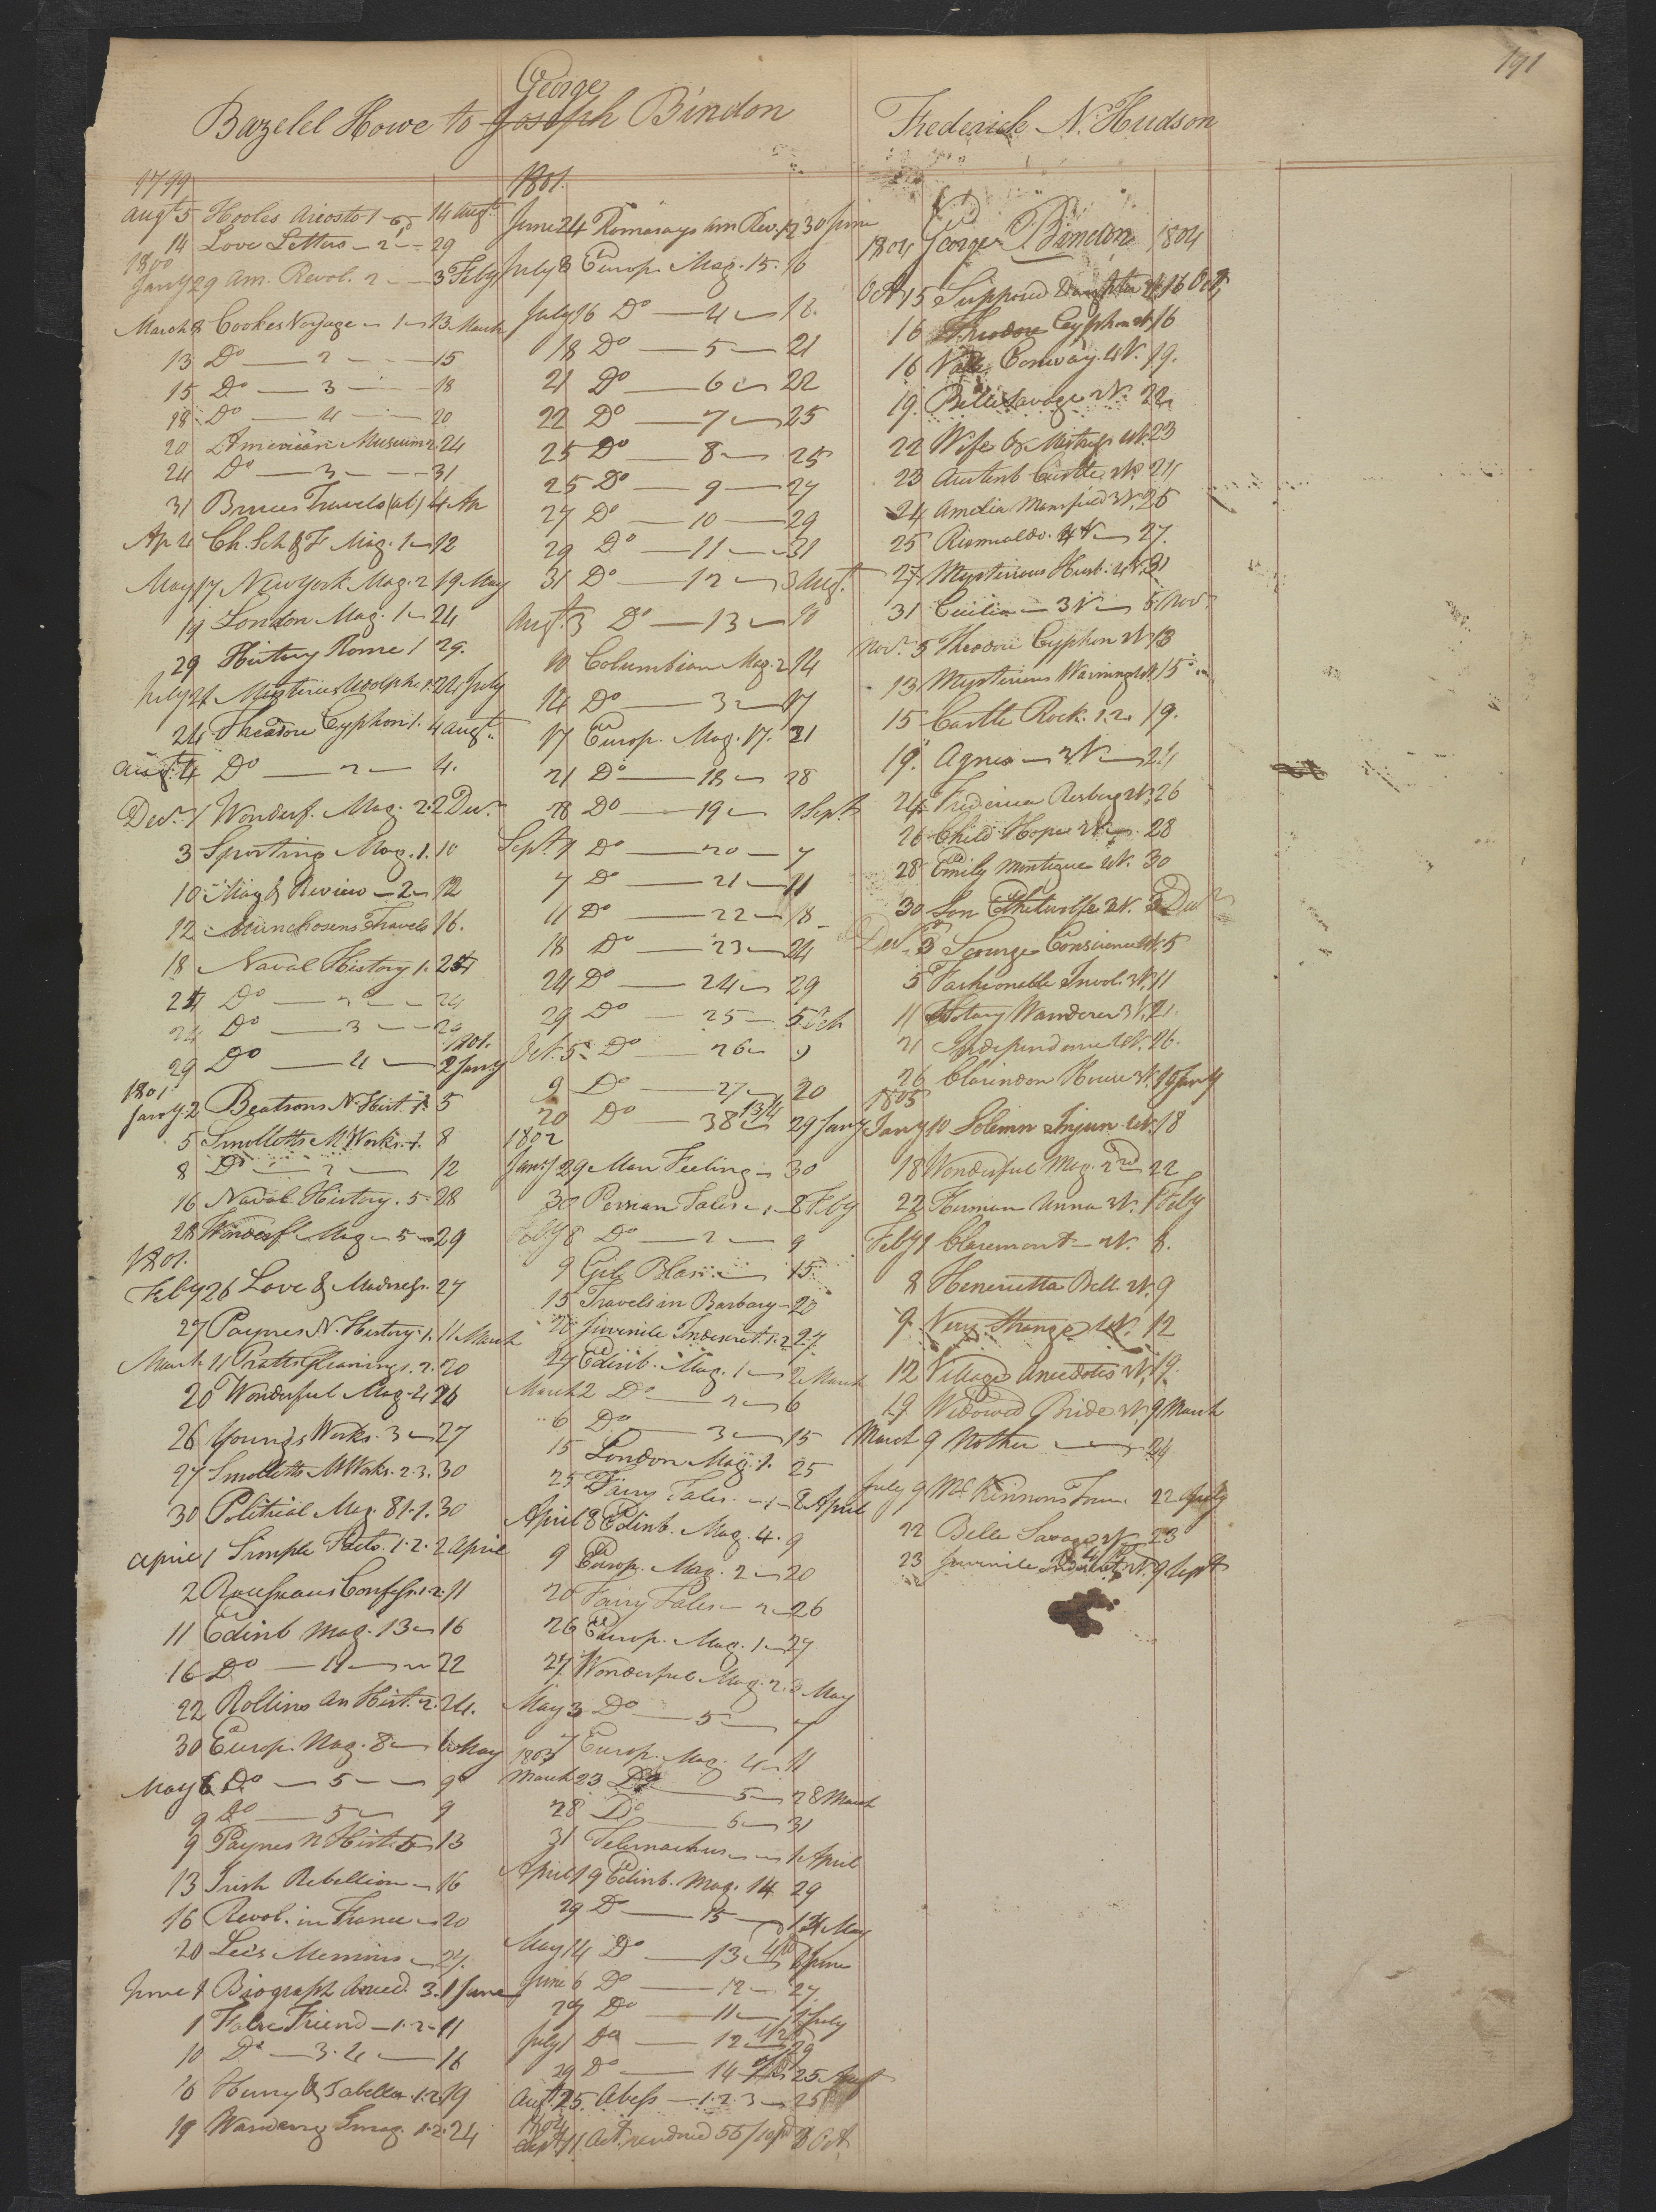 191
George
Bazelel Howe to Joseph Bindon
Frederick N. Hudson
1799
Augt 5 Hooles Ariosto 1 14 Augt
14 Love Letters - 2 - 29
1800
Jany 29 Am. Revol. 2 - 3 Feby
March 8 Cookes Voyage - 1 - 13 March
13 Do - 2 - 15
15 Do - 3 - 18
18 Do - 4 - 20
20 American Museum 2. 24
24 Do - 3 - 31
31 Bruces Travels (ab) 4 Ap
Ap 4 Ch. Sch & F Mag. 1 - 12
May 17 New York Mag. 2 19 May
19 London Mag. 1 - 24
29 History Rome 1 29.
July 21 Misteries Udolpho 1. 24 July
24 Theodore Cyphon 1. 4 Augt.
Augt. 4 Do - 2 - 4.
Decr. 1 Wonderf. Mag. 2. 2 Decr.
3 Sporting Mag. 1. 10
10 Mag & Review - 2 - 12
12 Munchosens Travels 16.
18 Naval History 1. 21
21 Do - 2 - 24
24 Do - 3 - 29
1801.
29 Do - 4 - 2 Jany
1801
Jany 2 Beatsons N. Hist. 1. 5
5 Smolletts M Works. 1. 8
8 Do - 2 - 12
16 Naval History. 5 - 28
28 Wonderfl Mag - 5 - 29
1801.
Feby 26 Love & Madness. 27
27 Paynes N. History. 1. 11 March
March 11 Pratts Gleanings. 2. 20
20 Wonderful Mag - 4 26
26 Youngs Works. 3 - 27
27 Smolletts M Works. 2.3. 30
30 Political Mag. 81.1. 30
April 1 Simple Facts. 1.2. 2 April
2 Rousseaus Confess. 1.2. 11
11 Edinb Mag. 13 - 16
16 Do - 11 - 22
22 Rollins An Hist. 2. 24.
30 Europ. Mag. 8 - 6 May
May 6 Do - 5 - 9
9 Do - 5 - 9
9 Paynes N Hist. 5 - 13
13 Irish Rebellion - 16
16 Revol. in France - 20
20 Lees Memoirs - 27.
June 1 Biograph Anecd. 3. 1 June
1 False Friend - 1.2 - 11
10 Do - 3.4 - 16
16 Henry & Isabella 1.2. 19
19 Wandering Imag. 1.2. 24
1801.
June 24 Romasays Am Rev. 12 30 June
July 8 Europ. Mag. 15. 16
July 16 Do - 4 - 18.
18 Do - 5 - 21
21 Do - 6 - 22
22 Do - 7 - 25
25 Do - 8 - 25
25 Do - 9 - 27
27 Do - 10 - 29
29 Do - 11 - 31
31 Do - 12 - 3 Augt.
Augt. 3 Do - 13 - 10
10 Columbian Mag. 2 14
14 Do - 3 - 17
17 Europ. Mag. 17. 21
21 Do - 18 - 28
28 Do - 19 - 1 Sept
Sept. 1 Do - 20 - 7
7 Do - 21 - 11
11 Do - 22 - 18
18 Do - 23 - 24
24 Do - 24 - 29
29 Do - 25 - 5 Oct
Oct. 5 Do - 26 - 9
9 Do - 27 - 20
20 Do - 38 13/4 29 Jany
1802
Jany 29 Man Feeling - 30
30 Persian Tales - 1 - 8 Feby
Feby 8 Do - 2 - 9
9 Gil Blas - 15
15 Travels in Barbary - 20
20 Juvenile Indescret. 1.2 27
27 Edinb. Mag. 1 - 2 March
March 2 Do - 2 - 6
6 Do - 3 - 15
15 London Mag. 1. 25
25 Fairy Tales. - 1 - 8 April
April 8 Edinb. Mag. 4. 9
9 Europ. Mag. 2 - 20
20 Fairy Tales - 2 - 26
26 Europ. Mag. 1 - 27
27 Wonderful Mag. 2. 3 May
May 3 Do - 5 - 7
7 Europ. Mag. 4 - 11
1803
March 23 Do - 5 - 28 March
28 Do - 6 - 31
31 Telemachus - 1 April
April 19 Edinb. Mag. 14 29
29 Do - 15 - 14 May
May 14 Do - 13 6 June
June 6 Do - 12 - 27.
27 Do - 11 - 1 July
July 1 Do - 12 1/2 29
29 Do - 14 25 Augt
Augt. 25. Abess - 1.2.3 - 25
1804
Sept 11. Act. rendred 55/ 8 Oct.
1804 George Bindon 1804
Oct. 15 Supposed Daughter 16 Oct.
16 Theodore Cyphon 2V. 16
16 Valle Conway. 4V. 19.
19. Belle Savage 2V. 22
22 Wife & Mistress 4V. 23
23 Austenb Castle 2V. 24
24 Amelia Mansfield 3V. 25
25 Romualdo. 4V - 27.
27 Mysterious Husb. 4V. 31
31 Cecilia - 3V - 5 Novr
Novr. 5 Theodore Cyphon 2V. 13
13 Mysterious Warning 2V. 15
15 Castle Rock. 1.2. 19.
19. Agnes - 3V - 24
24. Frederica Risberg 2V. 26
26 Child Hope 3V - 28
28 Emily Montague 4V. 30
30 Son Ethelwolfe 2V. 3 Decr
Decr. 3 Scourge Conscience 4V. 5
5 Fashionable Invol. 3V. 11
11 Solitary Wanderer 3V. 21.
21 Independence 4V. 26.
26 Clarendon House 3V. 10 Jany
1805
Jany 10 Solemn Injun. 4V. 18
18 Wonderful Mag. 2nd 22
22 Herman Unna 3V. 1 Feby
Feby 1 Claremont - 2V. 8.
8 Henrietta Bell. 2V. 9
9. Very Strange 4V. 12
12 Village Anecdotes 2V. 19.
19. Widowed Bride 2V. 9 March
March 9 Mother - 24
July 9 Mc Kinnons Tour. 22 July
22 Belle Savage 2V. 23
23 Juvenile Indescret 2V. 9 Sept